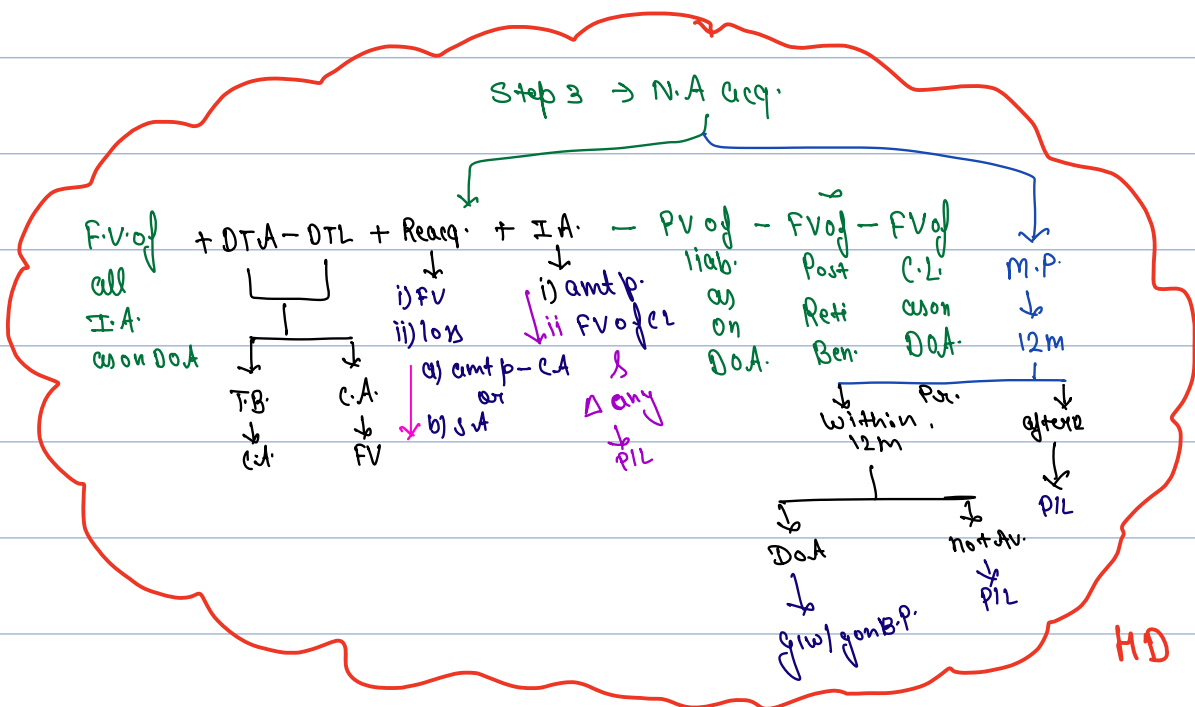 Step 3 → N.A acq.
F.V. of all I.A. as on DoA
+ DTA - DTL + Reacq. + I.A. - PV of liab. as on DoA. - FV of Post Reti Ben. - FV of C.L. as on DoA.
M.P.
12m
T.B.
C.A.
C.A.
FV
i) FV
ii) loss
a) amt p - CA
or
b) SA
i) amt p.
ii FV of CL
&
Δ any
P/L
Pr.
Within 12m
after 12
P/L
DoA
not Av.
P/L
g/w / g on B.P.
HD